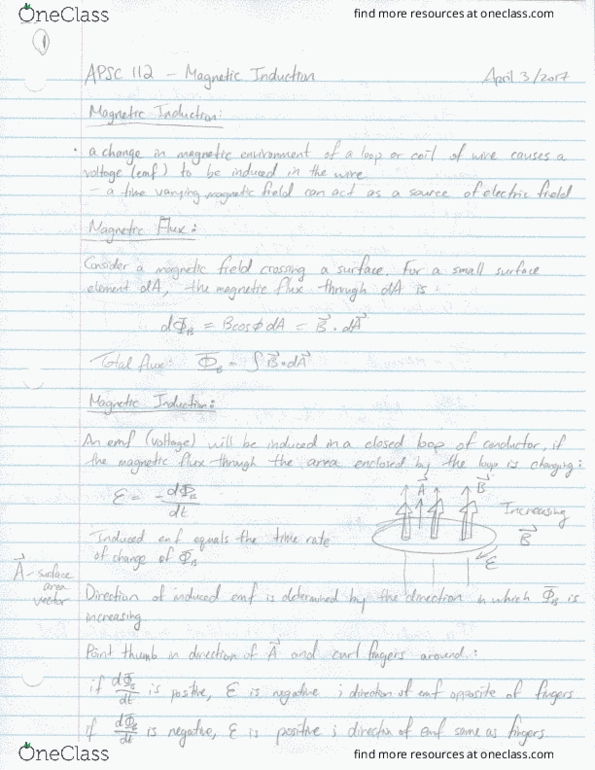 OneClass find more resources at oneclass.com
1
APSC 112 - Magnetic Induction April 3/2017
Magnetic Induction:
• a change in magnetic environment of a loop or coil of wire causes a
voltage (emf) to be induced in the wire
- a time varying magnetic field can act as a source of electric field
Magnetic Flux:
Consider a magnetic field crossing a surface. For a small surface
element dA, the magnetic flux through dA is:
dΦ_B = BcosϕdA = B⃗ · dA⃗
Total flux: Φ_B = ∫ B⃗ · dA⃗
Magnetic Induction:
An emf (voltage) will be induced in a closed loop of conductor, if
the magnetic flux through the area enclosed by the loop is changing:
ε = -dΦ_B/dt
A⃗ B⃗
Increasing
B⃗
ε
Induced emf equals the time rate
of change of Φ_B
A⃗ - surface
area
vector
Direction of induced emf is determined by the direction in which Φ_B is
increasing
Point thumb in direction of A⃗ and curl fingers around:
if dΦ_B/dt is positive, ε is negative ; direction of emf opposite of fingers
if dΦ_B/dt is negative, ε is positive ; direction of emf same as fingers.
OneClass find more resources at oneclass.com